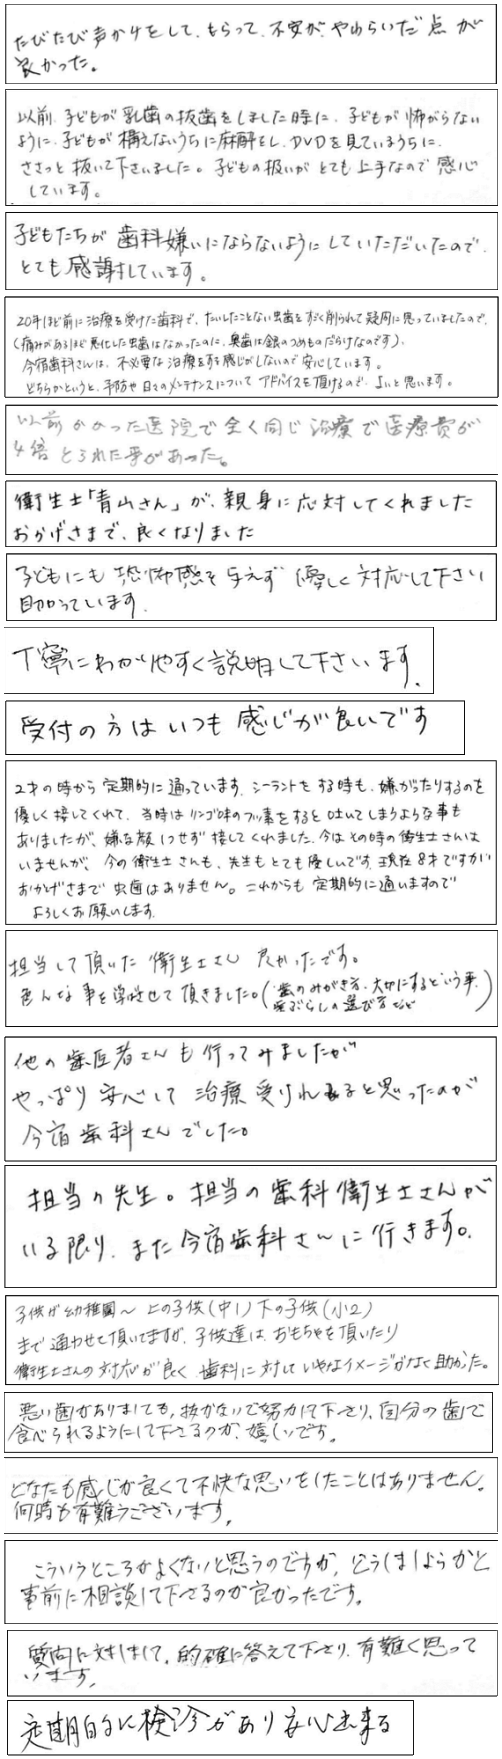 たびたび声かけをして、もらって、不安が、やわらいだ点が
良かった。
以前、子どもが乳歯の抜歯をしました時に、子どもが怖がらない
ように、子どもが構えないうちに麻酔をし、DVDを見ているうちに、
ささっと抜いて下さいました。子どもの扱いがとても上手なので感心
しています。
子どもたちが歯科嫌いにならないようにしていただいたので、
とても感謝しています。
20年ほど前に治療を受けた歯科で、たいしたことない虫歯をすごく削られて疑問に思っていましたので、
(痛みがあるほど悪化した虫歯はなかったのに、奥歯は銀のつめものだらけなのです)、
今宿歯科さんは、不必要な治療をする感じがしないので安心しています。
どちらかというと、予防や日々のメンテナンスについてアドバイスを頂けるので、よいと思います。
以前かかった医院で全く同じ治療で医療費が
4倍とられた事があった。
衛生士「青山さん」が、親身に応対してくれました
おかげさまで、良くなりました
子どもにも恐怖感を与えず優しく対応して下さい
助かっています。
丁寧にわかりやすく説明して下さいます。
受付の方はいつも感じが良いです
2才の時から定期的に通っています。シーラントをする時も、嫌がったりするのを
優しく接してくれて、当時はリンゴ味のフッ素をすると吐いてしまうような事も
ありましたが、嫌な顔1つせず接してくれました。今はその時の衛生士さんは
いませんが、今の衛生士さんも、先生もとても優しいです。現在8才ですが
おかげさまで虫歯はありません。これからも定期的に通いますので
よろしくお願いします。
担当して頂いた衛生士さん良かったです。
色んな事を学ばせて頂きました。(歯のみがき方、大切にするという事、
歯ブラシの選び方など)
他の歯医者さんも行ってみましたが
やっぱり安心して治療受けれると思ったのが
今宿歯科さんでした。
担当の先生。担当の歯科衛生士さんが
いる限り、また今宿歯科さんに行きます。
子供が幼稚園〜上の子供(中1)下の子供(小2)
まで通わせて頂いてますが、子供達は、おもちゃを頂いたり
衛生士さんの対応が良く歯科に対していやなイメージがなく助かった。
悪い歯がありましても、抜かないで努力して下さり、自分の歯で
食べられるようにして下さるのが、嬉しいです。
どなたも感じが良くて不快な思いをしたことはありません。
何時も有難うございます。
こういうところがよくないと思うのですが、どうしましょうかと
事前に相談して下さるのが良かったです。
質問に対しまして、的確に答えて下さり、有難く思って
います。
定期的に検診があり安心出来る